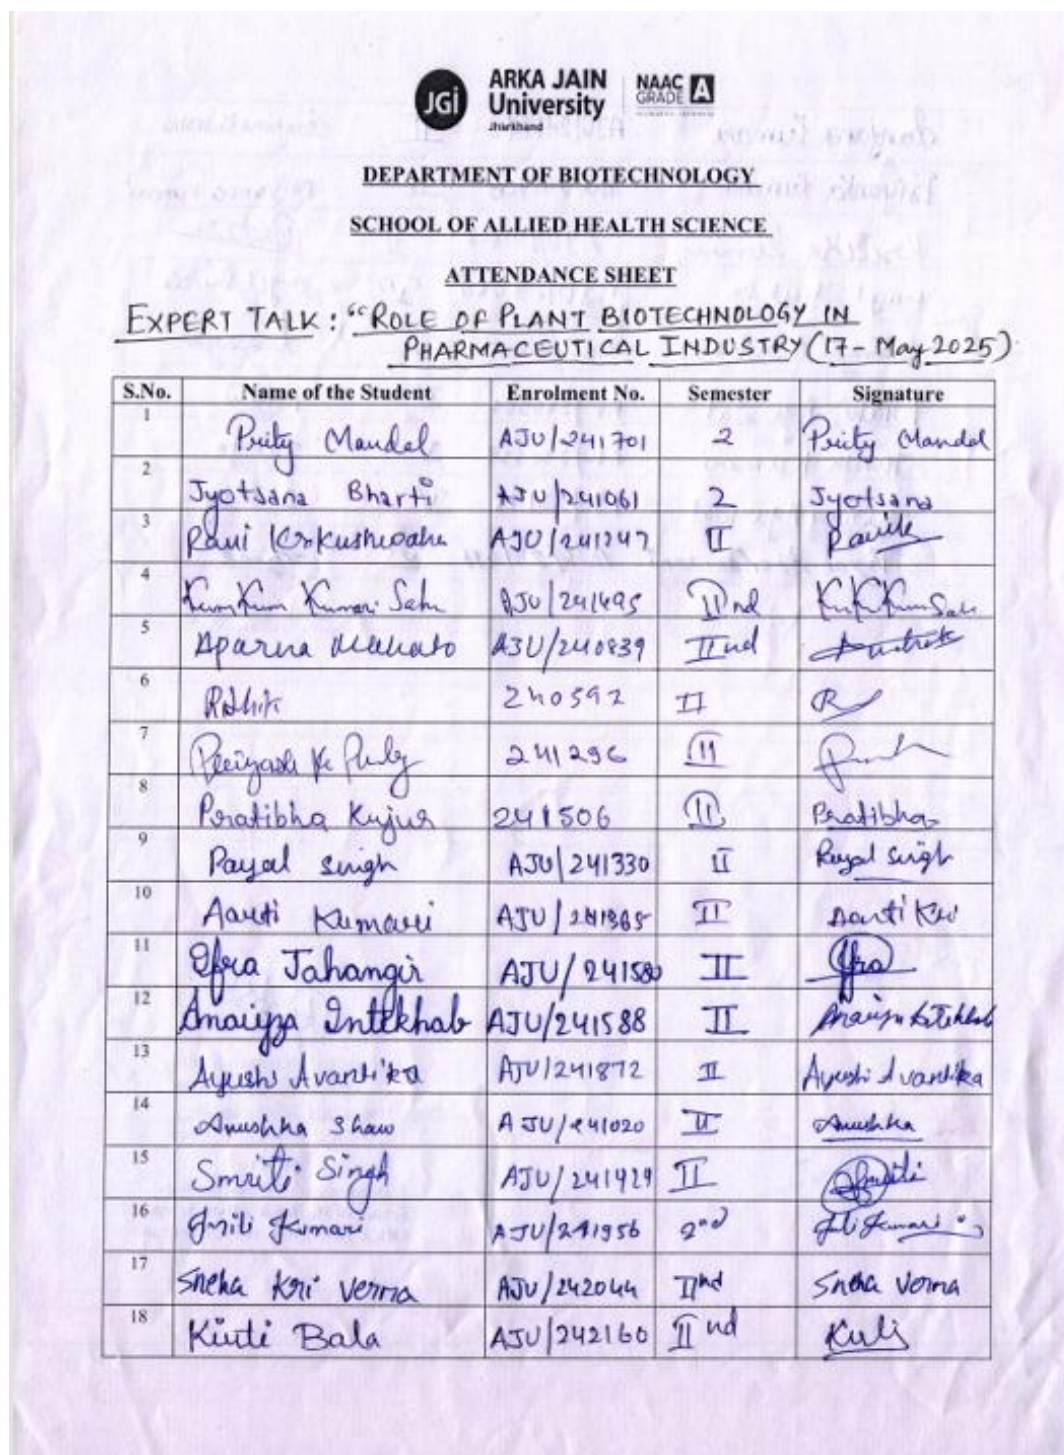 JGi ARKA JAIN University Jharkhand NAAC GRADE A
DEPARTMENT OF BIOTECHNOLOGY
SCHOOL OF ALLIED HEALTH SCIENCE
ATTENDANCE SHEET
EXPERT TALK : "ROLE OF PLANT BIOTECHNOLOGY IN
PHARMACEUTICAL INDUSTRY (17 - May 2025)
S.No. Name of the Student Enrolment No. Semester Signature
1 Prity Mandal AJU/241701 2 Prity Mandal
2 Jyotsana Bharti AJU/241061 2 Jyotsana
3 AJU/241247 II
4 KumKum Kumari Sahu AJU/241495 IInd
5 Aparna Mahato AJU/240839 IInd
6 240592 II R
7 241296 II
8 Pratibha Kujur 241506 II Pratibha
9 Payal singh AJU/241330 II Payal singh
10 Aarti Kumari AJU/241365 II Aarti Kri
11 Ifra Jahangir AJU/241580 II Ifra
12 Anaiyza Intekhab AJU/241588 II Anaiyza Intekhab
13 Ayushi Avantika AJU/241872 II Ayushi Avantika
14 Anushka Shaw AJU/241020 II Anushka
15 Smriti Singh AJU/241929 II Smriti
16 Kumari AJU/241956 2nd Kumari
17 Sneha Kri Verma AJU/242044 IInd Sneha Verma
18 Kirti Bala AJU/242160 IInd Kirti